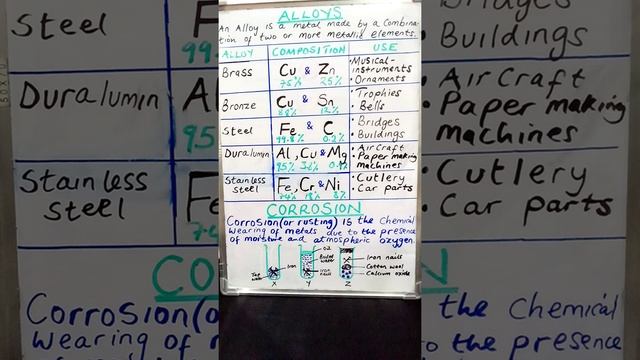 ALLOYS
An Alloy is a metal made by a Combina-
tion of two or more metallic elements.
ALLOY COMPOSITION USE
Brass Cu & Zn •Musical-
instruments
75% 25% •Ornaments
Bronze Cu & Sn •Trophies
88% 12% •Bells
Steel Fe & C •Bridges
99.8% 0.2% •Buildings
Duralumin Al, Cu & Mg •Air Craft
•Paper making
95% machines
Stainless Fe, Cr & Ni •Cutlery
steel 18% 8% •Car parts
CORROSION
Corrosion(or rusting) is the Chemical
Wearing of metals due to the presence
of moisture and atmospheric oxygen.
Iron
Iron nails
Iron nails
Cotton wool
Calcium oxide
X Y Z
Steel Fe
99.
Duralumin Al
95
Stainless Fe
Steel
CO
Corrosion(o
Wearing of
Bridges
•Buildings
•Air Craft
•Paper making
machines
•Cutlery
•Car parts
N
the Chemical
the presence